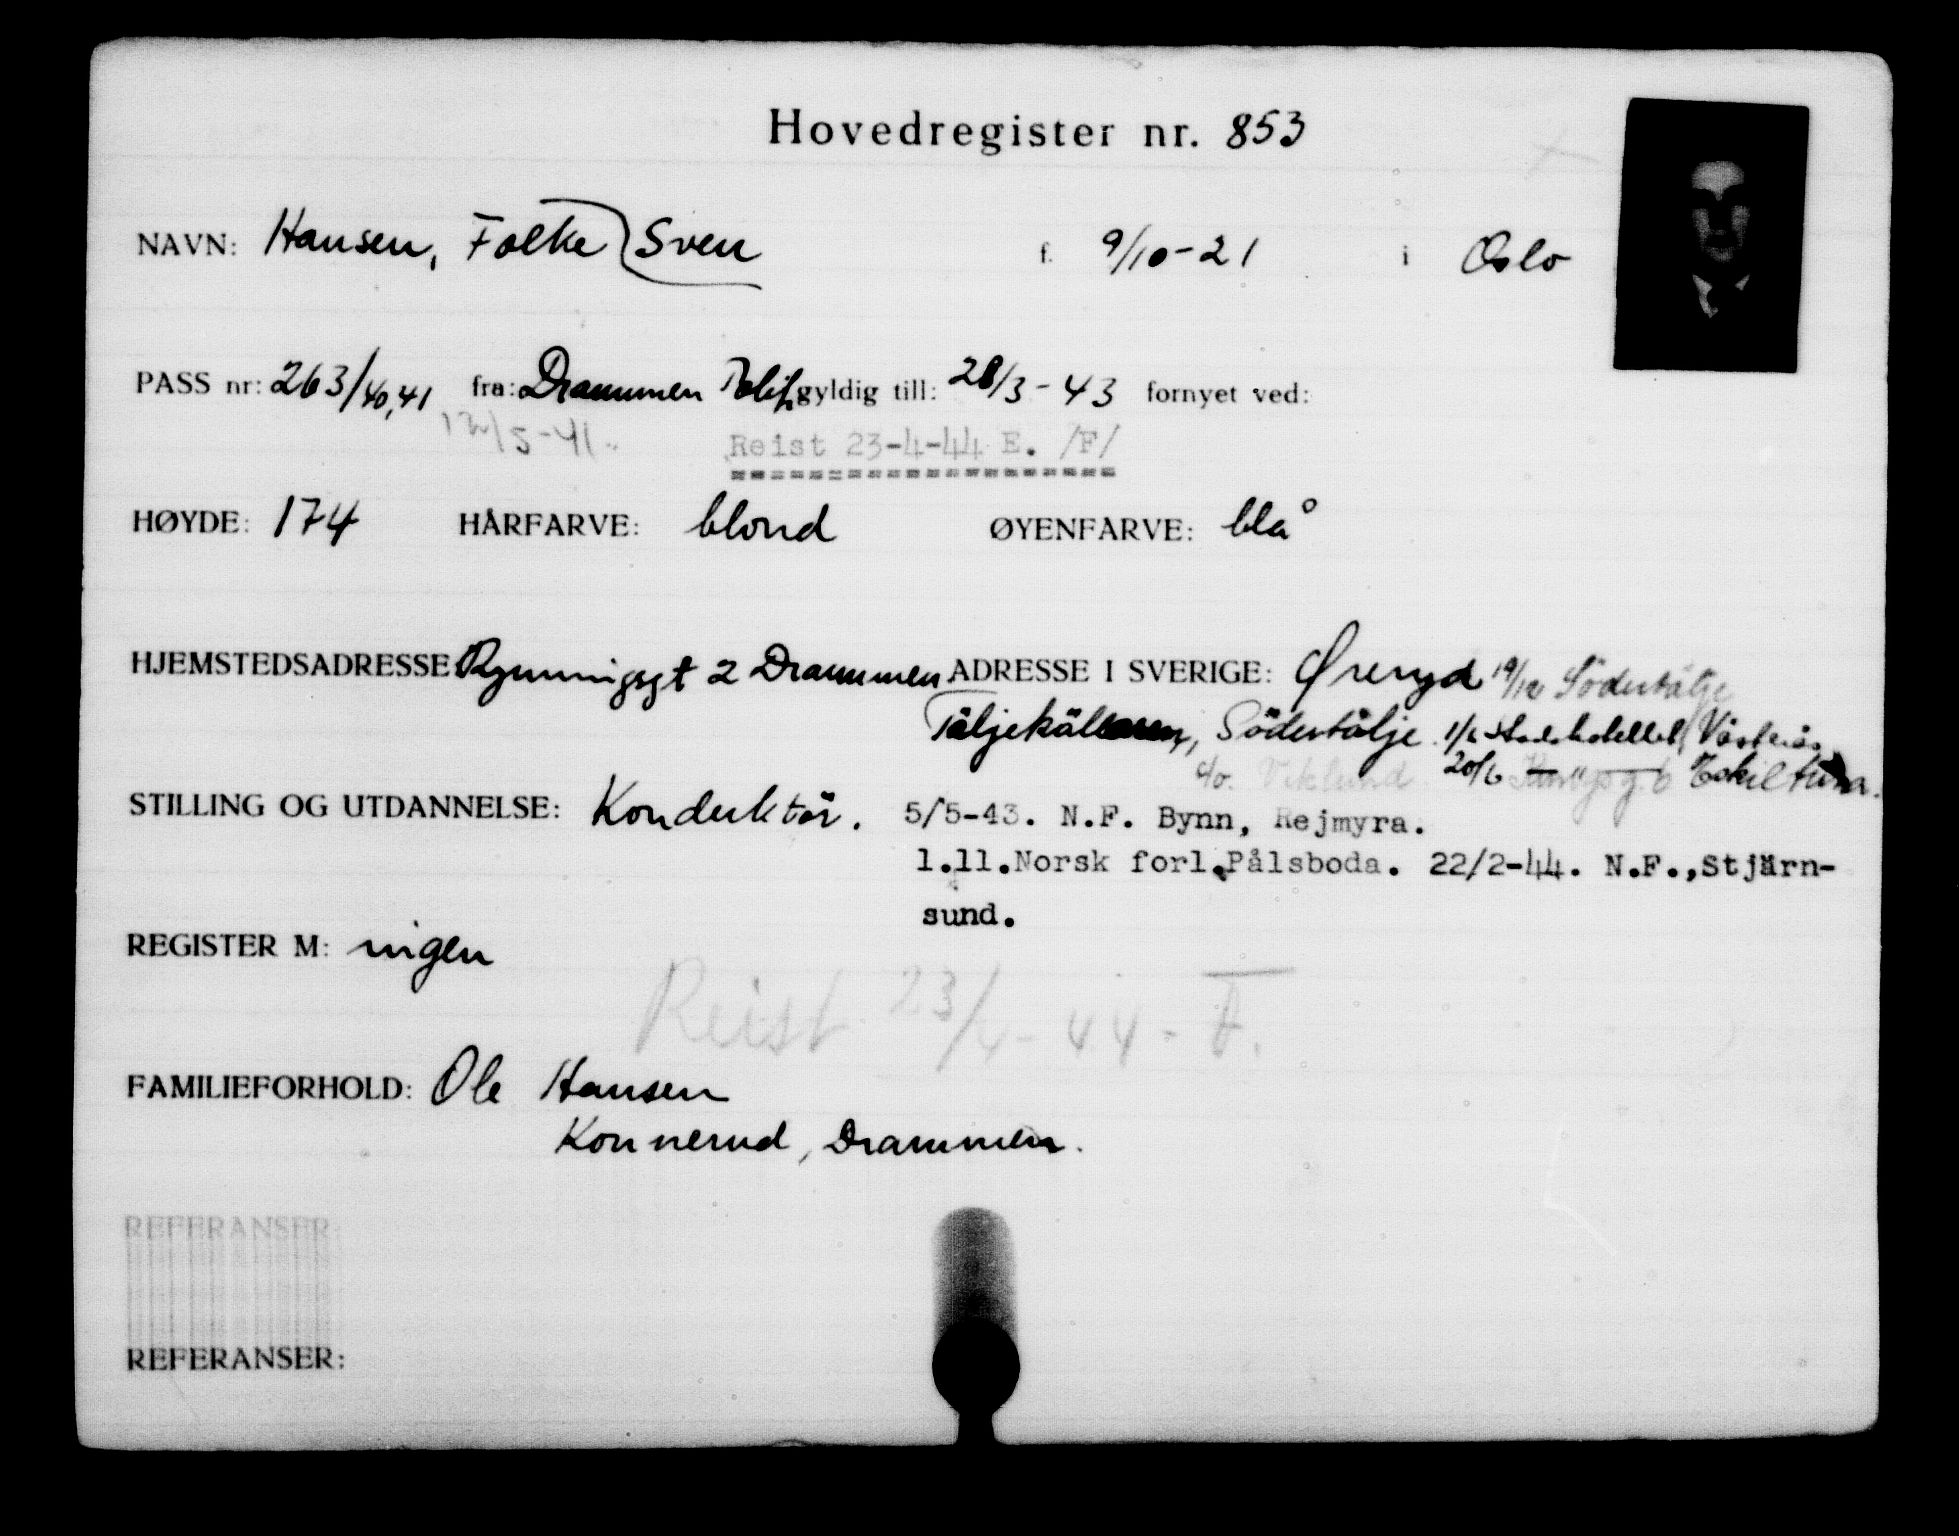 Hovedregister nr. 853
NAVN: Hansen, Folke Sven f. 9/10-21 i Oslo
PASS nr: 263/40,41 fra: Drammen gyldig till: 28/3-43 fornyet ved:
12/5-41. Reist 23-4-44 E. /F/
HØYDE: 174 HÅRFARVE: blond ØYENFARVE: blå
HJEMSTEDSADRESSE: 2 Drammen ADRESSE I SVERIGE: Øreryd 19/12 Södertälje
Täljekällaren, Södertälje. 1/6 Stadshotellet, Västerås
c/o. Viklund 20/6 Eskiltuna.
STILLING OG UTDANNELSE: Konduktör. 5/5-43. N.F. Bynn, Rejmyra.
1.11.Norsk forl.Pålsboda. 22/2-44. N.F.,Stjärn-
sund.
REGISTER M: ingen
Reist 23/4-44-F.
FAMILIEFORHOLD: Ole Hansen
Konnerud, Drammen.
REFERANSER:
REFERANSER: